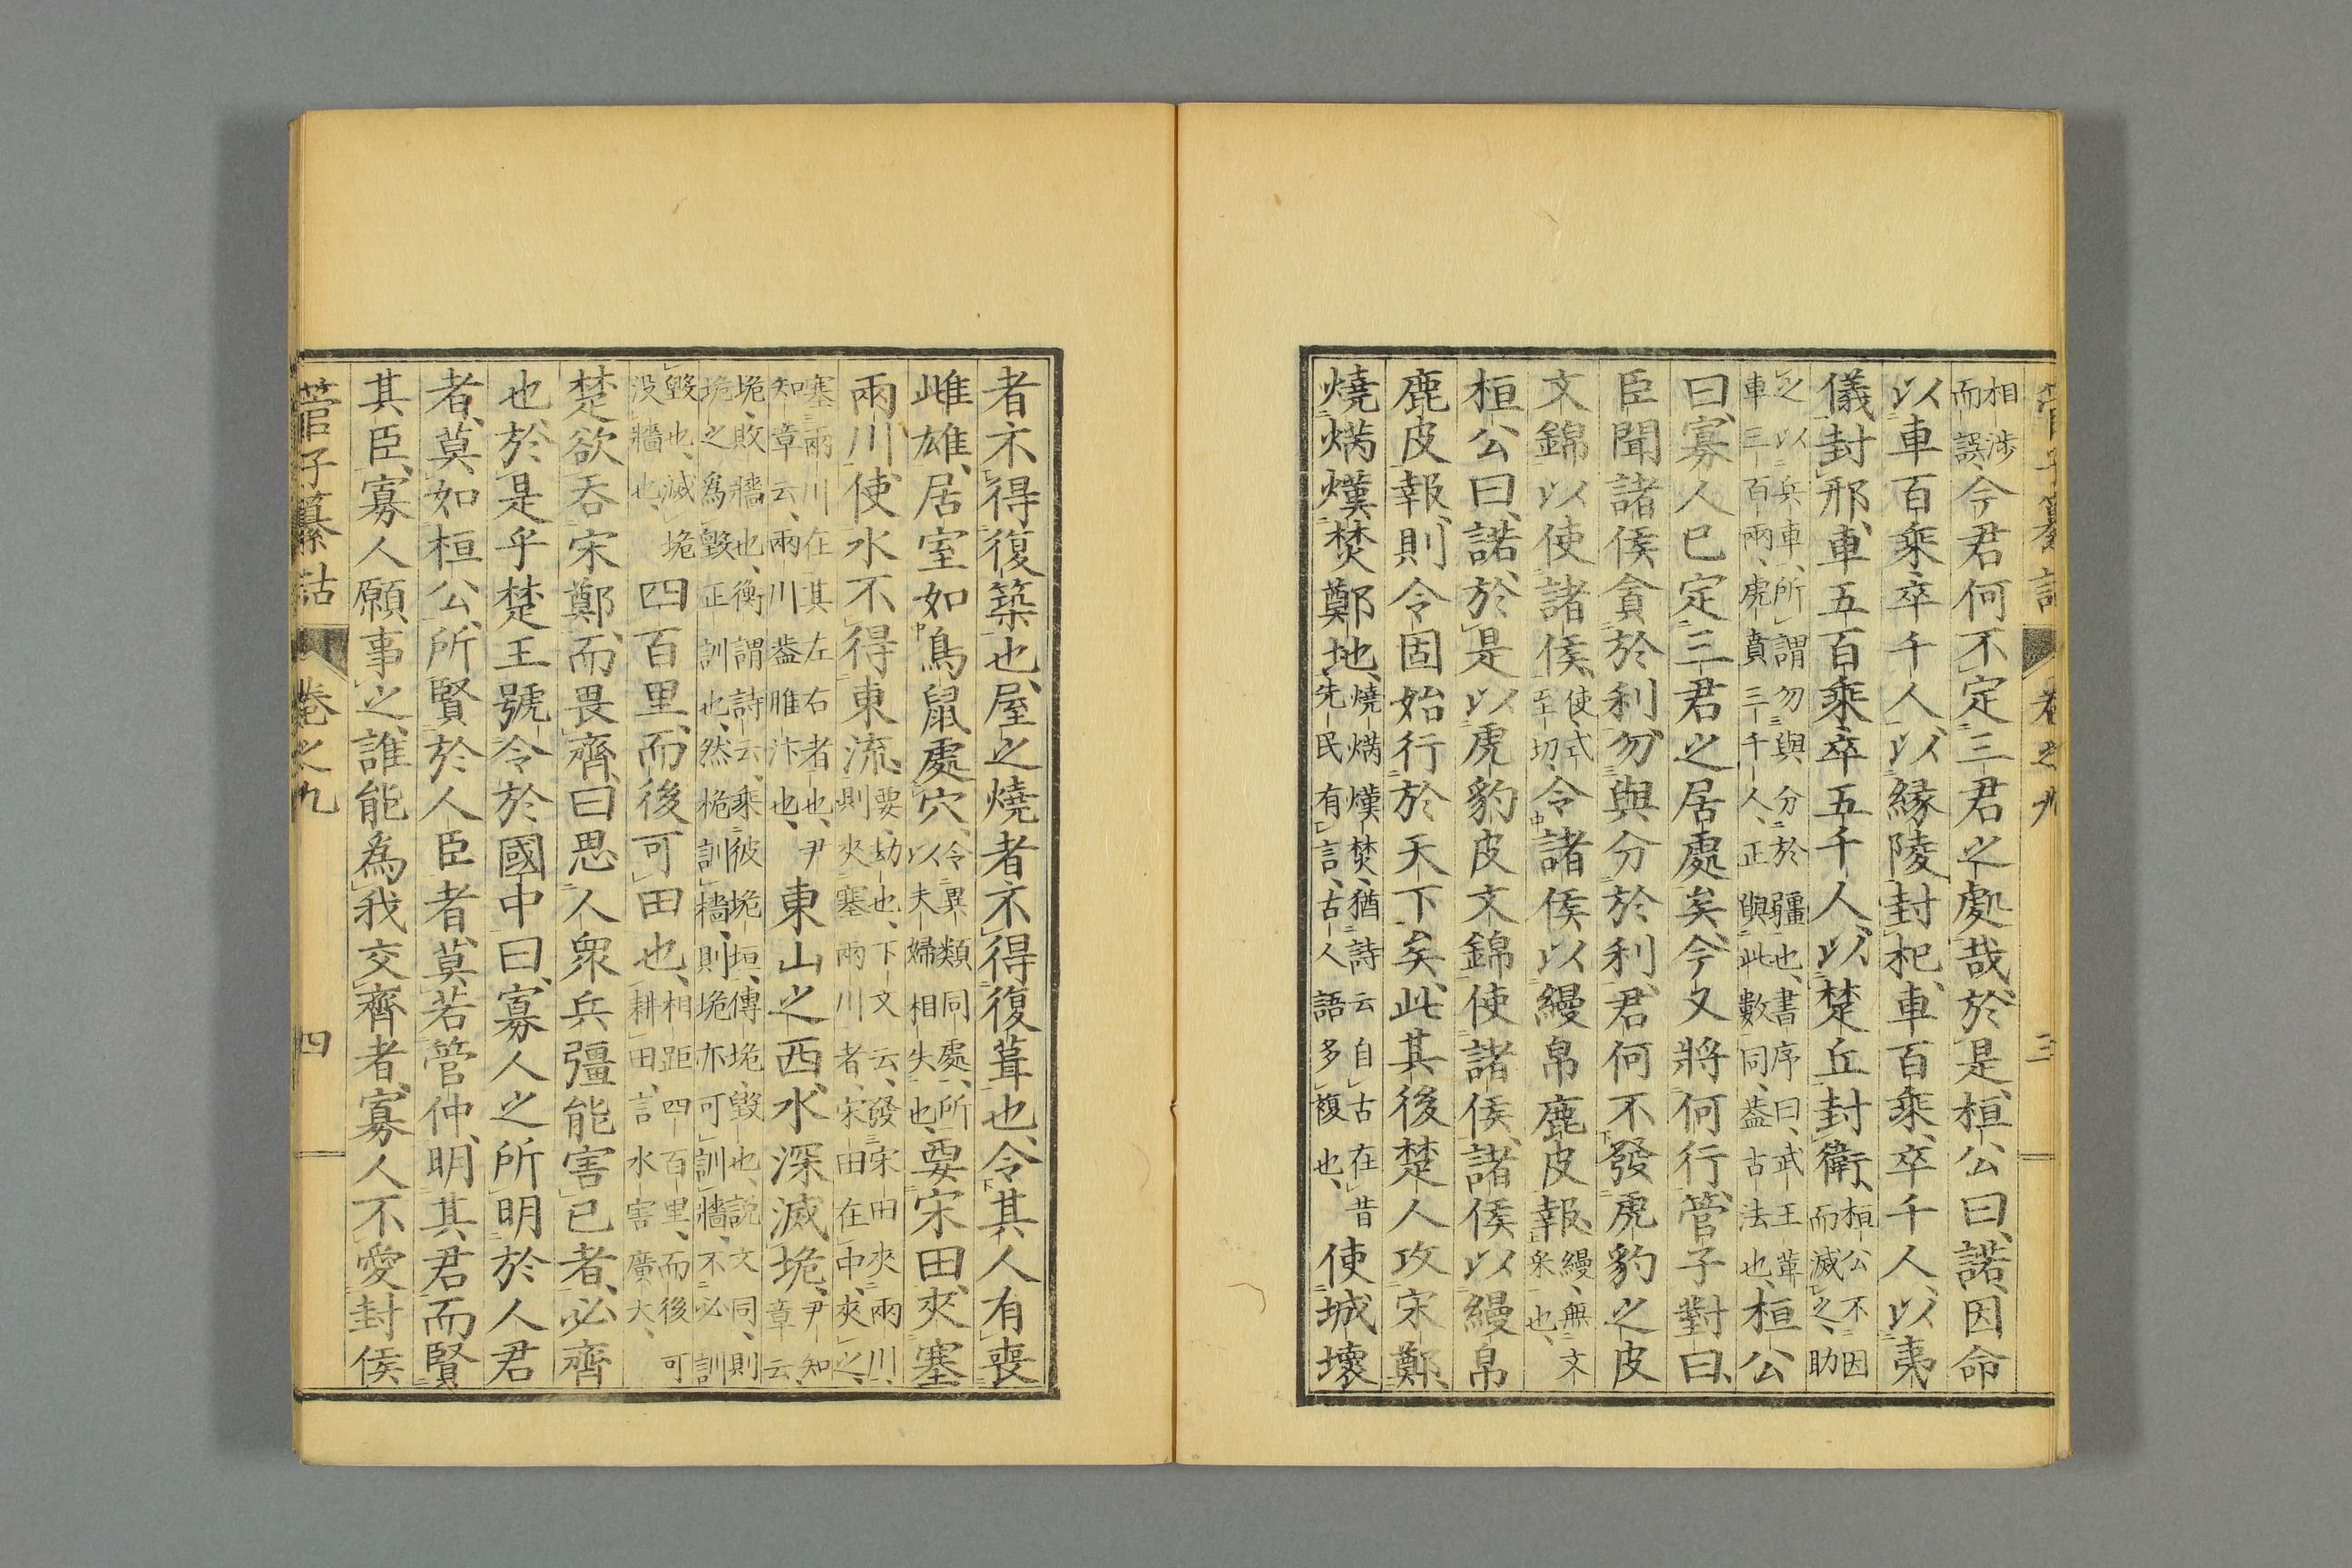 管子纂詁 卷之九 三
相涉而誤、今君何不定三君之處哉、於是桓公曰、諾、因命
以車百乘、卒千人、以緣陵封杞、車百乘、卒千人、以夷
儀封邢、車五百乘、卒五千人、以楚丘封衞、桓公不因而滅之、助
之以兵車、所謂勿與分於疆也、書序曰、武王革車三百兩、虎賁三千人、正與此數同、蓋古法也、桓公
曰、寡人已定三君之居處矣、今又將何行、管子對曰、
臣聞諸侯貪於利、勿與分於利、君何不發虎豹之皮
文錦以使諸侯、使、式至切、令諸侯以縵帛鹿皮報、縵、無文采也、
桓公曰、諾、於是以虎豹皮文錦使諸侯、諸侯以縵帛
鹿皮報、則令固始行於天下矣、此其後楚人攻宋鄭、
燒焫熯焚鄭地、燒焫熯焚、猶詩云自古在昔先民有言、古人語多複也、使城壞
者不得復築也、屋之燒者不得復葺也、令其人有喪
雌雄、居室如鳥鼠處穴、令異類同處、所以夫婦相失也、要宋田、夾塞
兩川、使水不得東流、要、劫也、下文云、發宋田夾兩川、則夾塞兩川者、宋田在中、夾之、
塞兩川在其左右者也、尹知章云、兩川蓋睢汴也、東山之西、水深滅垝、尹知章云、
垝、敗牆也、衡謂詩云、乘彼垝垣、傳垝、毀也、說文同、則垝之爲毀正訓也、然桅訓牆、則垝亦可訓牆、不必訓
毀也、滅垝沒牆也、四百里、而後可田也、相距四百里、而後可耕田、言水害廣大、
楚欲吞宋鄭、而畏齊、曰思人衆兵彊能害己者、必齊
也、於是乎楚王號令於國中曰、寡人之所明於人君
者、莫如桓公、所賢於人臣者、莫若管仲、明其君而賢
其臣、寡人願事之、誰能爲我交齊者、寡人不愛封侯
管子纂詁 卷之九 四